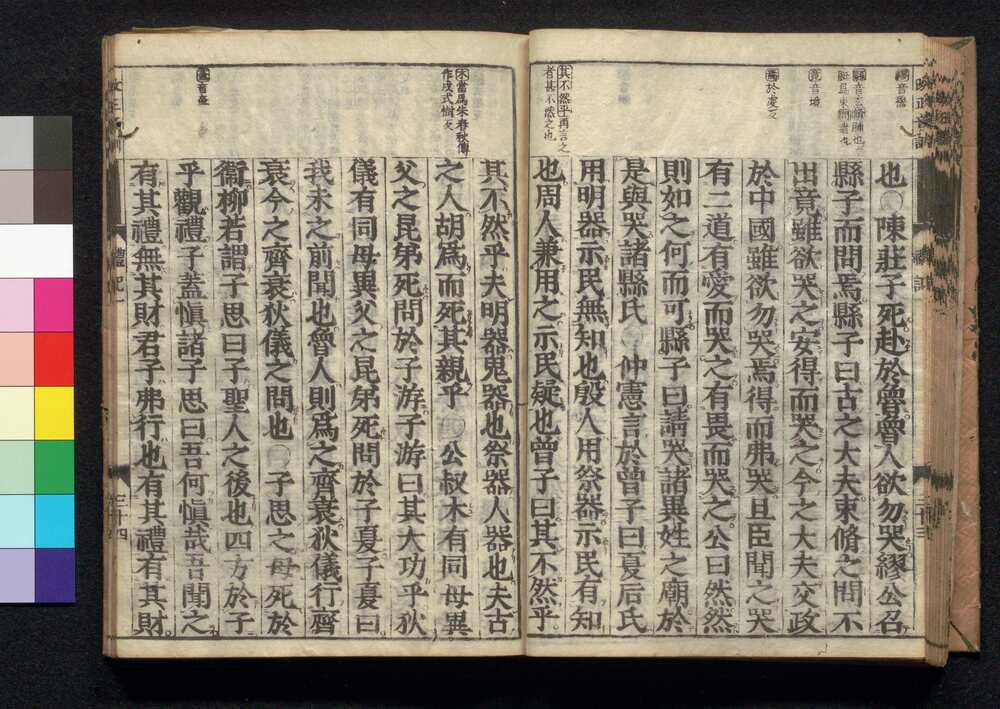 音穆
音玄
竟音境
焉於虔反
其不然乎再言之
者甚不然之也
木當爲朱春秋傳
作戍式樹反
也陳莊子死赴於魯魯人欲勿哭繆公召
縣子而問焉縣子曰古之大夫束脩之問不
出竟雖欲哭之安得而哭之今之大夫交政
於中國雖欲勿哭焉得而弗哭且臣聞之哭
有二道有愛而哭之有畏而哭之公曰然然
則如之何而可縣子曰請哭諸異姓之廟於
是與哭諸縣氏仲憲言於曾子曰夏后氏
用明器示民無知也殷人用祭器示民有知
也周人兼用之示民疑也曾子曰其不然乎
其不然乎夫明器鬼器也祭器人器也夫古
之人胡爲而死其親乎公叔木有同母異
父之昆弟死問於子游子游曰其大功乎狄
儀有同母異父之昆弟死問於子夏子夏曰
我未之前聞也魯人則爲之齊衰狄儀行齊
衰今之齊衰狄儀之問也子思之母死於
衞柳若謂子思曰子聖人之後也四方於子
乎觀禮子蓋慎諸子思曰吾何慎哉吾聞之
有其禮無其財君子弗行也有其禮有其財
禮記一
三十四